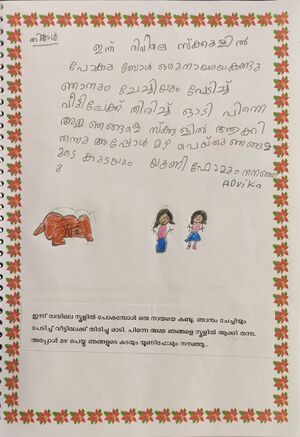 തിങ്കൾ
ഇന്ന് രാവിലെ സ്ക്കൂളിൽ
പോകുമ്പോൾ ഒരു നായയെ കണ്ടു
ഞാനും ചേച്ചിയും പേടിച്ച്
വീട്ടിലേക്ക് തിരിച്ച് ഓടി പിന്നെ
അമ്മ ഞങ്ങളെ സ്കൂളിൽ ആക്കി
തന്നു അപ്പോൾ മഴ പെയ്തു ഞങ്ങളു
ടെ കുടയും യൂണിഫോമും നനഞ്ഞു
ADviKa
ഇന്ന് രാവിലെ സ്കൂളിൽ പോകുമ്പോൾ ഒരു നായയെ കണ്ടു. ഞാനും ചേച്ചിയും
പേടിച്ച് വീട്ടിലേക്ക് തിരിച്ചു ഓടി. പിന്നെ അമ്മ ഞങ്ങളെ സ്കൂളിൽ ആക്കി തന്നു.
അപ്പോൾ മഴ പെയ്തു ഞങ്ങളുടെ കുടയും യൂണിഫോമും നനഞ്ഞു..